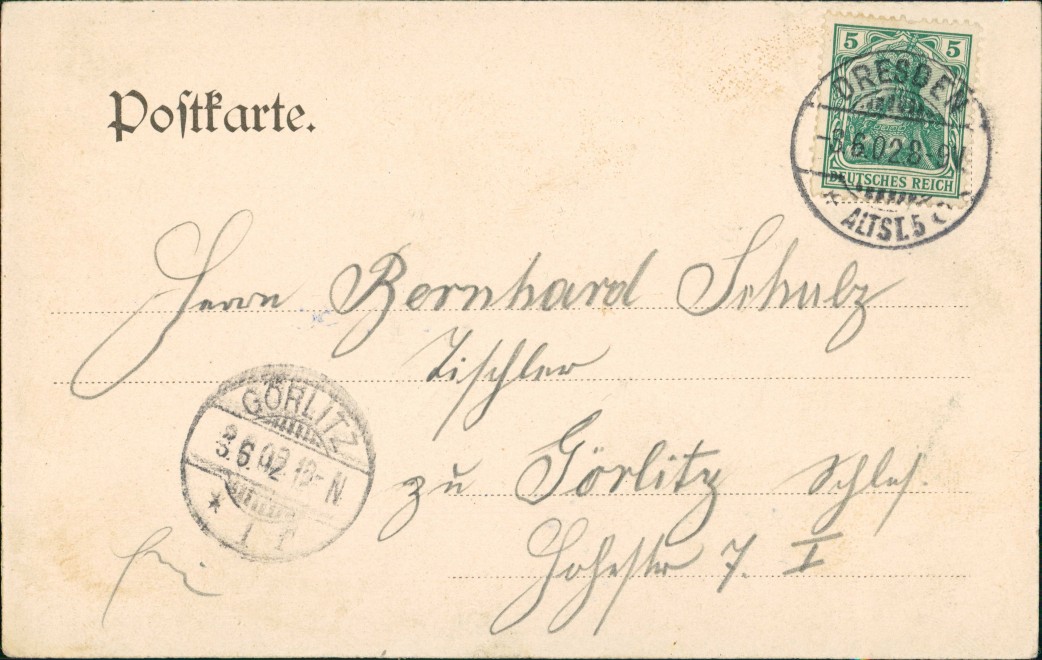 Postkarte.
5 5
DEUTSCHES REICH
DRESDEN
3.6.02.8-9V
ALTST. 5
Herrn Bernhard Schulz
Tischler
GÖRLITZ
3.6.02
N
zu Görlitz Schles.
Hohestr 7. I